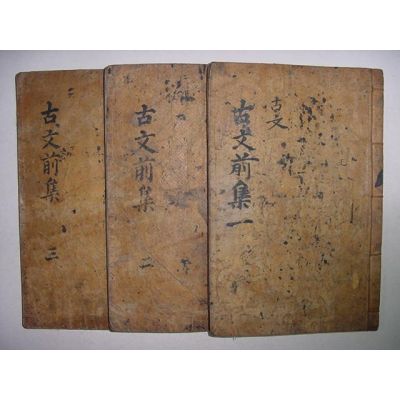 古文前集 一
古文
古文前集 二
古文前集 三